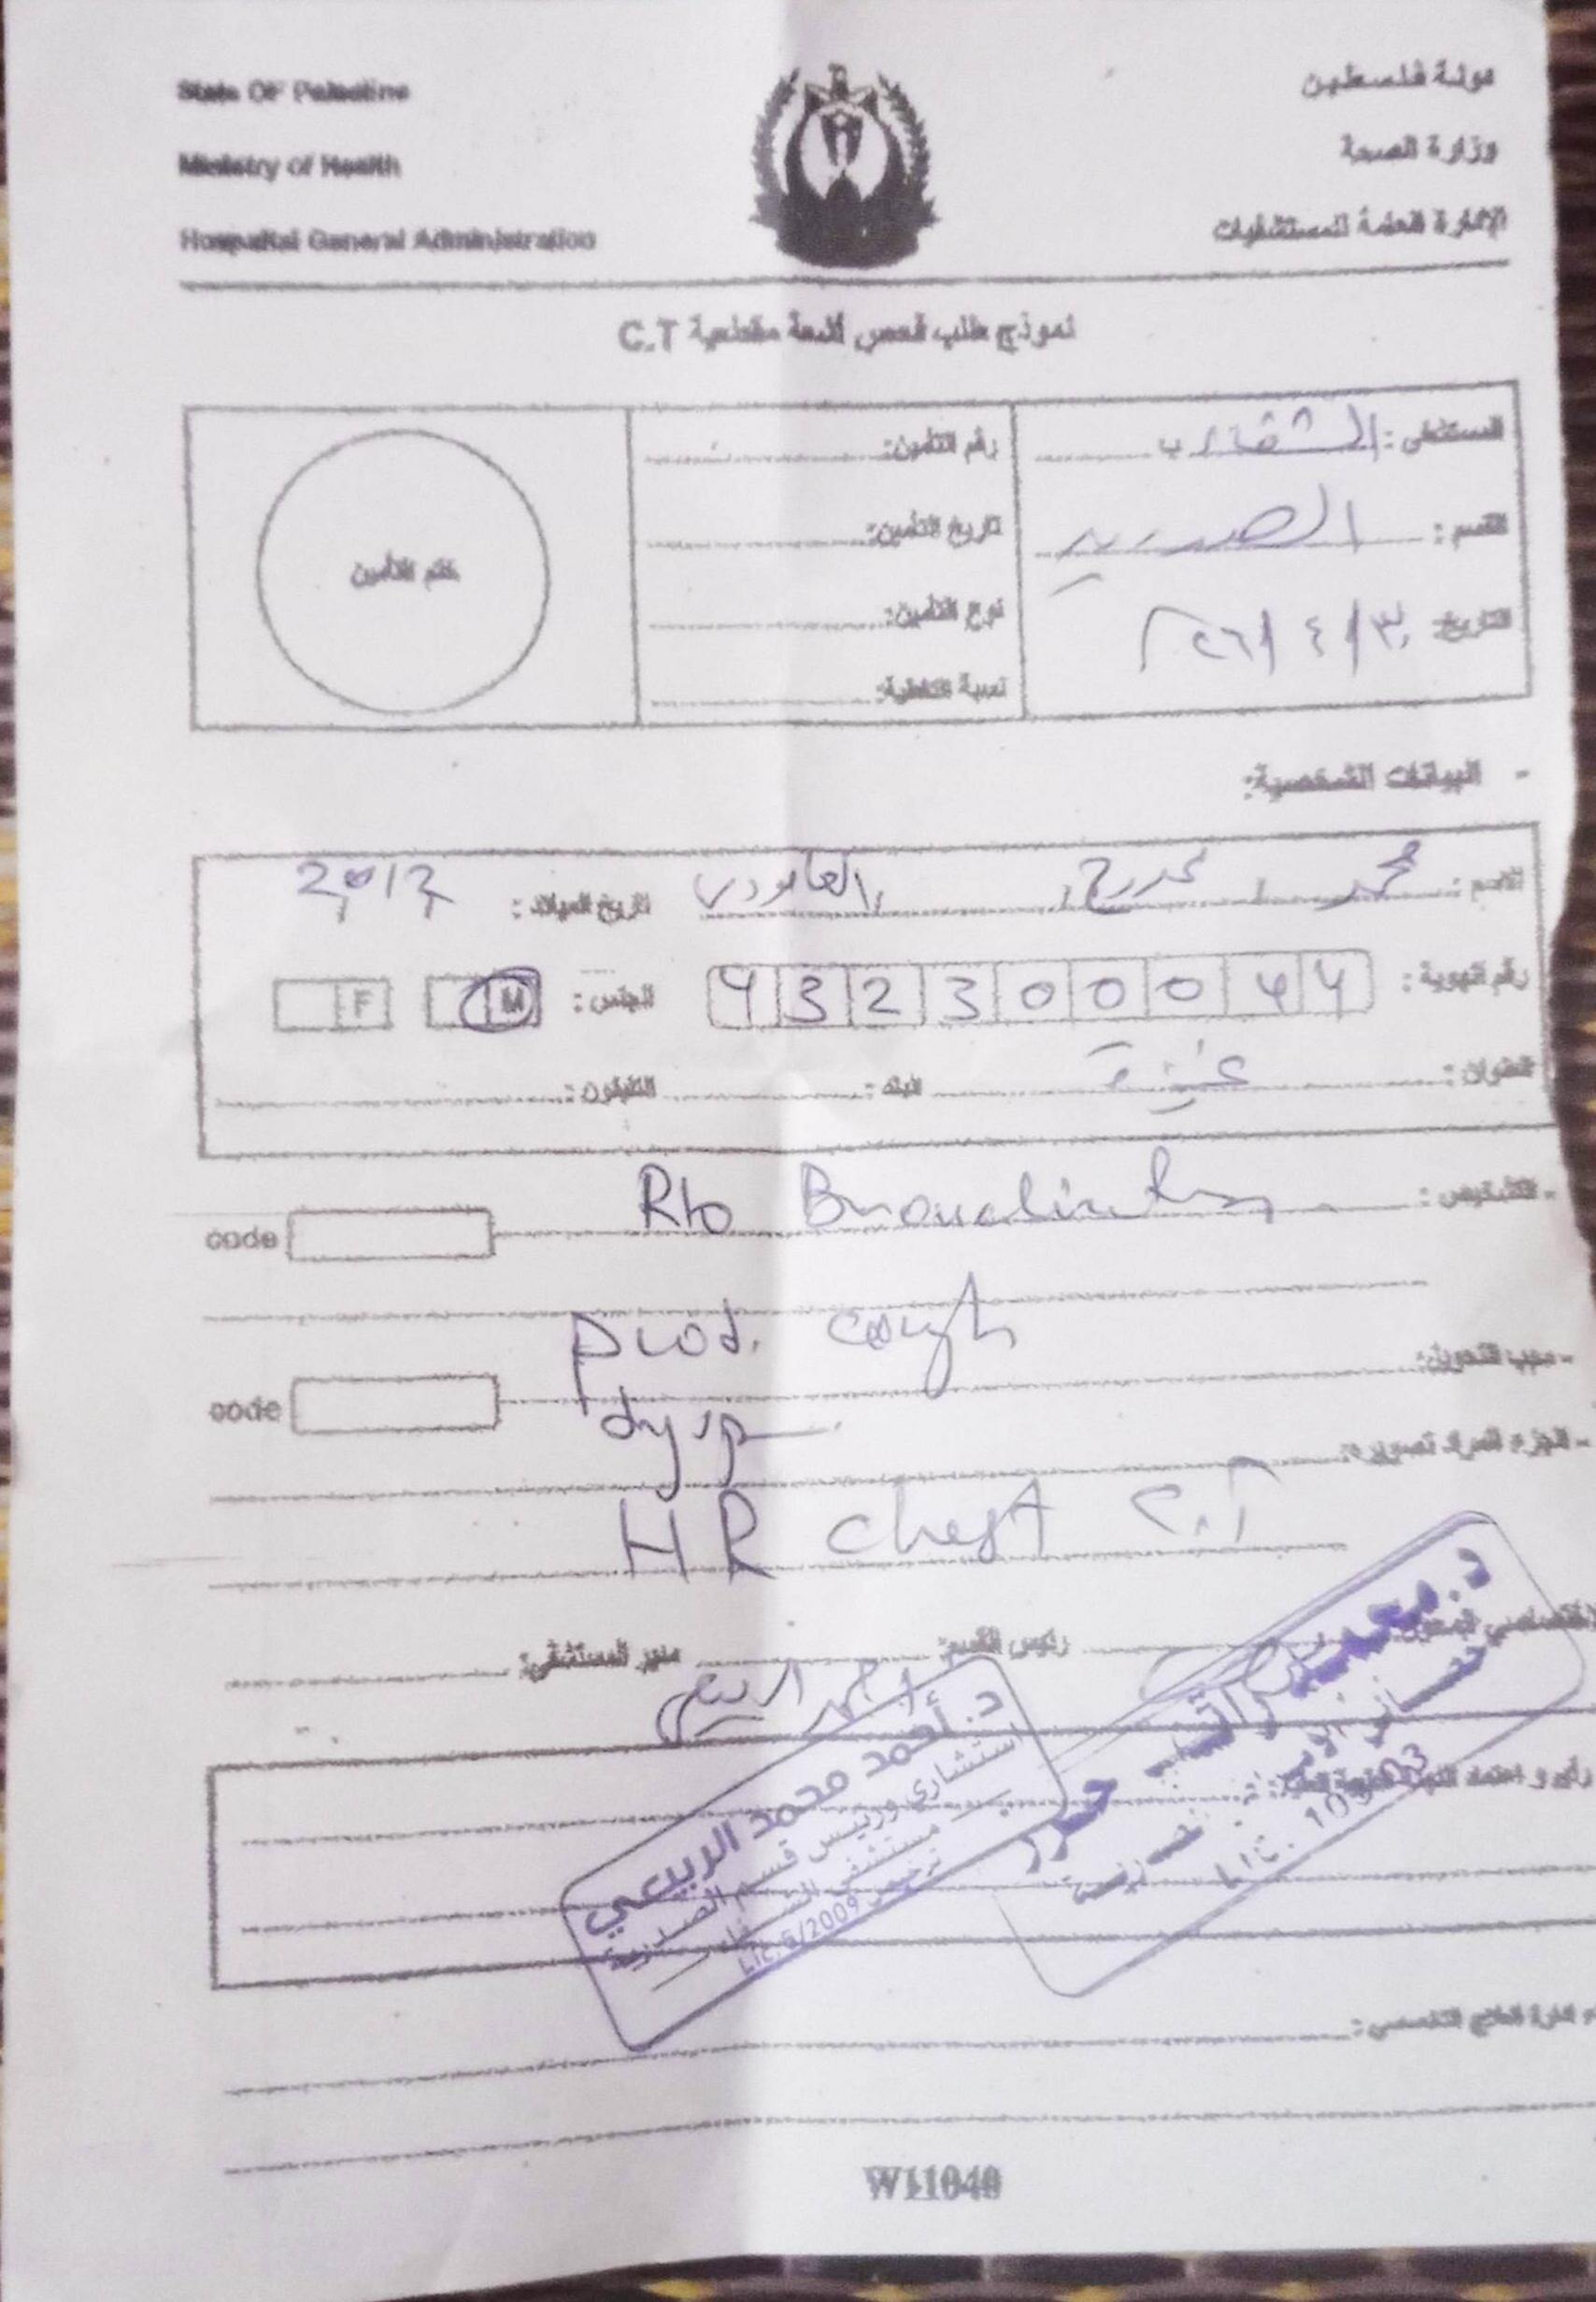 State OF Palestine
دولة فلسطين
Ministry of Health
وزارة الصحة
Hospatial General Administration
الإدارة العامة للمستشفيات
نموذج طلب فحص أشعة مقطعية C.T
المستشفى :
القسم : الصدرية
التاريخ: ٣٠/٤/٢٠٢٦
رقم التأمين:
تاريخ التأمين:
نوع التأمين:
نسبة التغطية:
ختم التأمين
- البيانات الشخصية:
الاسم : محمد
تاريخ الميلاد :
رقم الهوية : 4 3 2 3 0 0 0 4 4
الجنس : M F
العنوان : غزة
التليفون :
- التشخيص : R/o
code
prod. cough
- سبب التحويل:
code
dysp
- الجزء المراد تصويره:
HR chest C.T
رئيس القسم:
مدير المستشفى:
أحمد الربيعي
د. أحمد محمد الربيعي
استشاري ورئيس قسم الصدرية
مستشفى الشفاء
Lic. 5/2009
Lic. 10303
إدارة العلاج التخصصي:
W11040